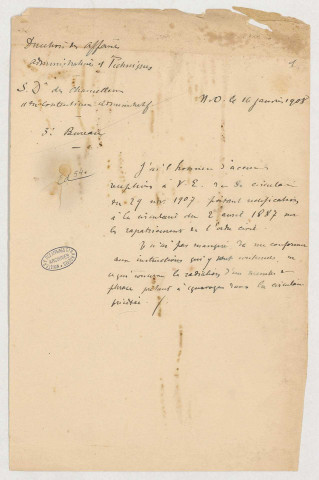 Direction des Affaires
administratives et Techniques
1
S. Don des Chancelleries
et du Contentieux administratif
3e Bureau
N.D. le 16 janvier 1908
J'ai l'honneur d'accuser
réception à V. E. de sa circulaire
du 29 1907, portant modification
à la circulaire du 2 avril 1887 sur
le rapatriement et l'état civil.
Je n'ai pas manqué de me conformer
aux instructions qui y sont contenues, en
ce qui concerne la radiation d'un membre de
phrase prêtant à équivoque dans la circulaire
précitée.
ARCHIVES